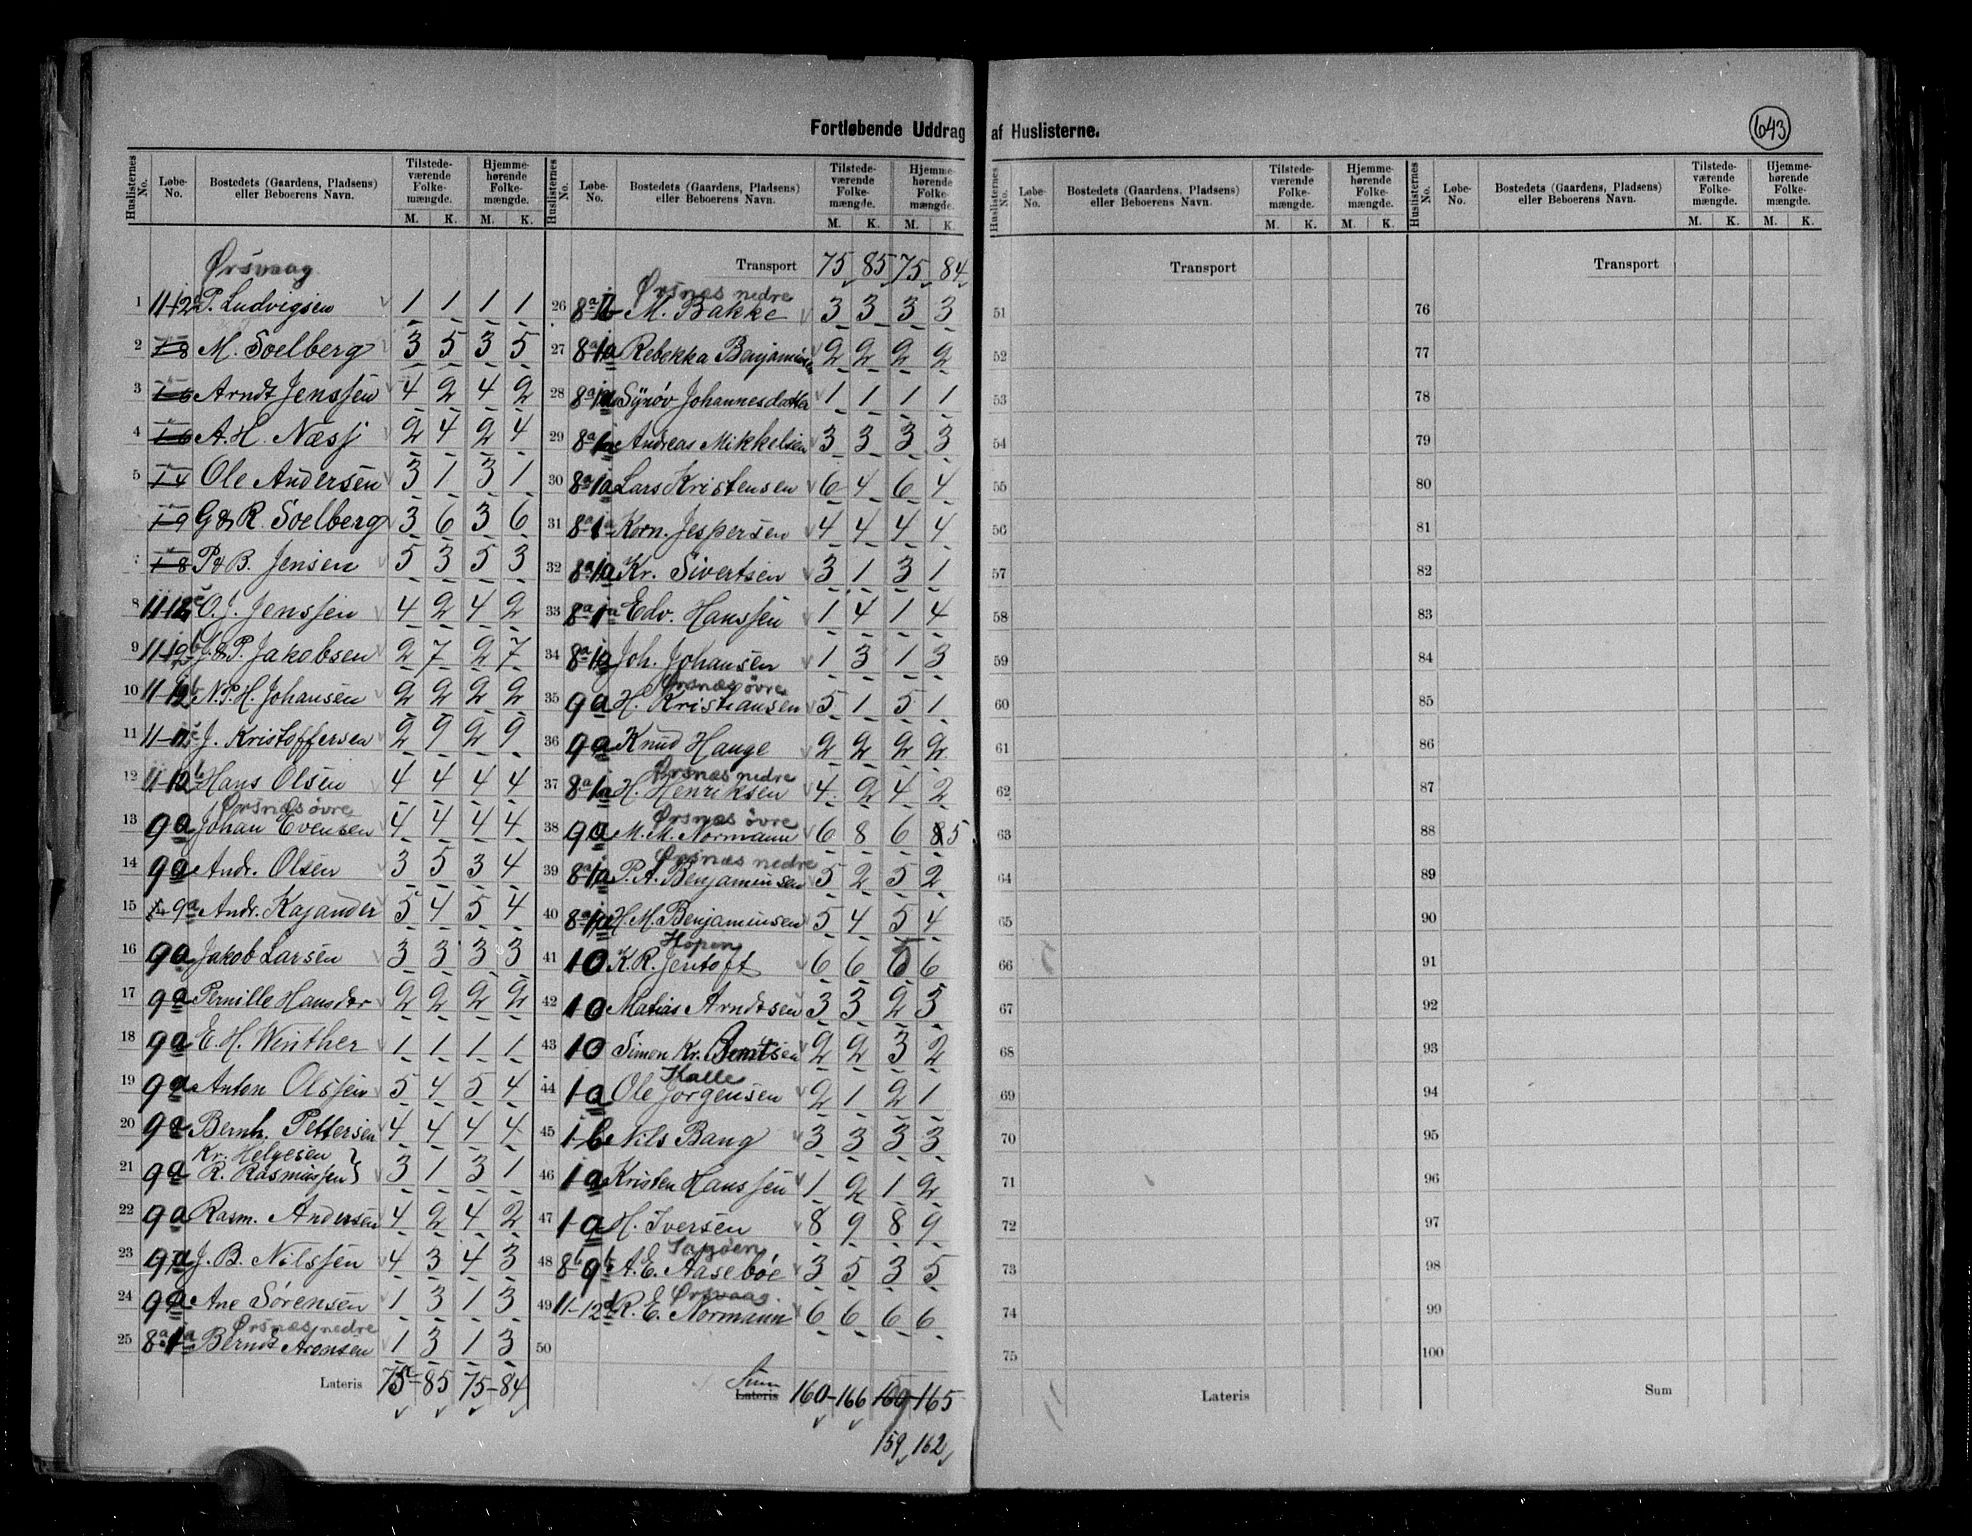 Fortløbende Uddrag af Huslisterne.
643
Huslisternes No. Løbe-No. Bostedets (Gaardens, Pladsens) eller Beboerens Navn. Tilstedeværende Folkemængde. M. K. Hjemmehørende Folkemængde. M. K.
Ørsvaag
1 P. Ludvigsen 1 1 1 1
2 M. Soelberg 3 5 3 5
3 Arndt Jenssen 4 2 4 2
4 A. H. Næss 2 4 2 4
5 Ole Andersen 3 1 3 1
G & R. Soelberg 3 6 3 6
7 P & B. Jensen 5 3 5 3
8 O. J. Jenssen 4 2 4 2
9 J. & P. Jakobsen 2 7 2 7
10 N. P. H. Johansen 2 2 2 2
11 J. Kristoffersen 2 9 2 9
12 Hans Olsen 4 4 4 4
Ørsnæs øvre
13 9a Johan Evensen 4 4 4 4
14 9a Andr. Olsen 3 5 3 4
15 9a Andr. Kajander 5 4 5 4
16 9a Jakob Larsen 3 3 3 3
17 9a Pernille Hansdtr 2 2 2 2
18 9a E. H. Winther 1 1 1 1
19 9a Anton Olssen 5 4 5 4
20 9a Bernh. Pettersen 4 4 4 4
Kr. Helgesen
21 9a R. Rasmussen 3 1 3 1
22 9a Rasm. Andersen 4 2 4 2
23 9a J. B. Nilssen 4 3 4 3
24 9a Ane Sørensen 1 3 1 3
Ørsnæs nedre
25 8a 1a Berndt Aronsen 1 3 1 3
Lateris 75 85 75 84
Huslisternes No. Løbe-No. Bostedets (Gaardens, Pladsens) eller Beboerens Navn. Tilstedeværende Folkemængde. M. K. Hjemmehørende Folkemængde. M. K.
Transport 75 85 75 84
Ørsnæs nedre
26 M. Bakke 3 3 3 3
27 8a 1a Rebekka Benjaminsen 2 2 2 2
28 8a 1a Synøv Johannesdatter 1 1 1 1
29 8a 1a Andreas Mikkelsen 3 3 3 3
30 8a 1a Lars Kristensen 6 4 6 4
31 8a 1a Korn. Jespersen 4 4 4 4
32 8a 1a Kr. Sivertsen 3 1 3 1
33 8a 1a Edv. Hanssen 1 4 1 4
34 8a 1a Joh. Johansen 1 3 1 3
Ørsnæs øvre
35 9a H. Kristiansen 5 1 5 1
36 9a Knud Hauge 2 2 2 2
Ørsnæs nedre
37 8a 1a H. Henriksen 4 2 4 2
Ørsnæs øvre
38 9a M. M. Normann 6 8 6 8 5
Ørsnæs nedre
39 8a 1a P. A. Benjaminsen 5 2 5 2
40 8a 1a H. M. Benjaminsen 5 4 5 4
Hopen
41 10 K. R. Jentoft 6 6 6 6
42 10 Matias Arndtsen 3 3 2 3
43 10 Simon Kr. Berntsen 2 2 3 2
Kalle
44 1a Ole Jørgensen 2 1 2 1
45 1b Nils Bang 3 3 3 3
46 1a Kristen Hanssen 1 2 1 2
47 1a H. Iversen 8 9 8 9
48 8b 9b A. E. Aasebøe 3 5 3 5
Ørsvaag.
49 11-12 R. E. Normann 6 6 6 6
50
Sum
Lateris 160 166 160 165
159 162
Huslisternes No. Løbe-No. Bostedets (Gaardens, Pladsens) eller Beboerens Navn. Tilstedeværende Folkemængde. M. K. Hjemmehørende Folkemængde. M. K.
Transport
51
52
53
54
55
56
57
58
59
60
61
62
63
64
65
66
67
68
69
70
71
72
73
74
75
Lateris
Huslisternes No. Løbe-No. Bostedets (Gaardens, Pladsens) eller Beboerens Navn. Tilstedeværende Folkemængde. M. K. Hjemmehørende Folkemængde. M. K.
Transport
76
77
78
79
80
81
82
83
84
85
86
87
88
89
90
91
92
93
94
95
96
97
98
99
100
Sum